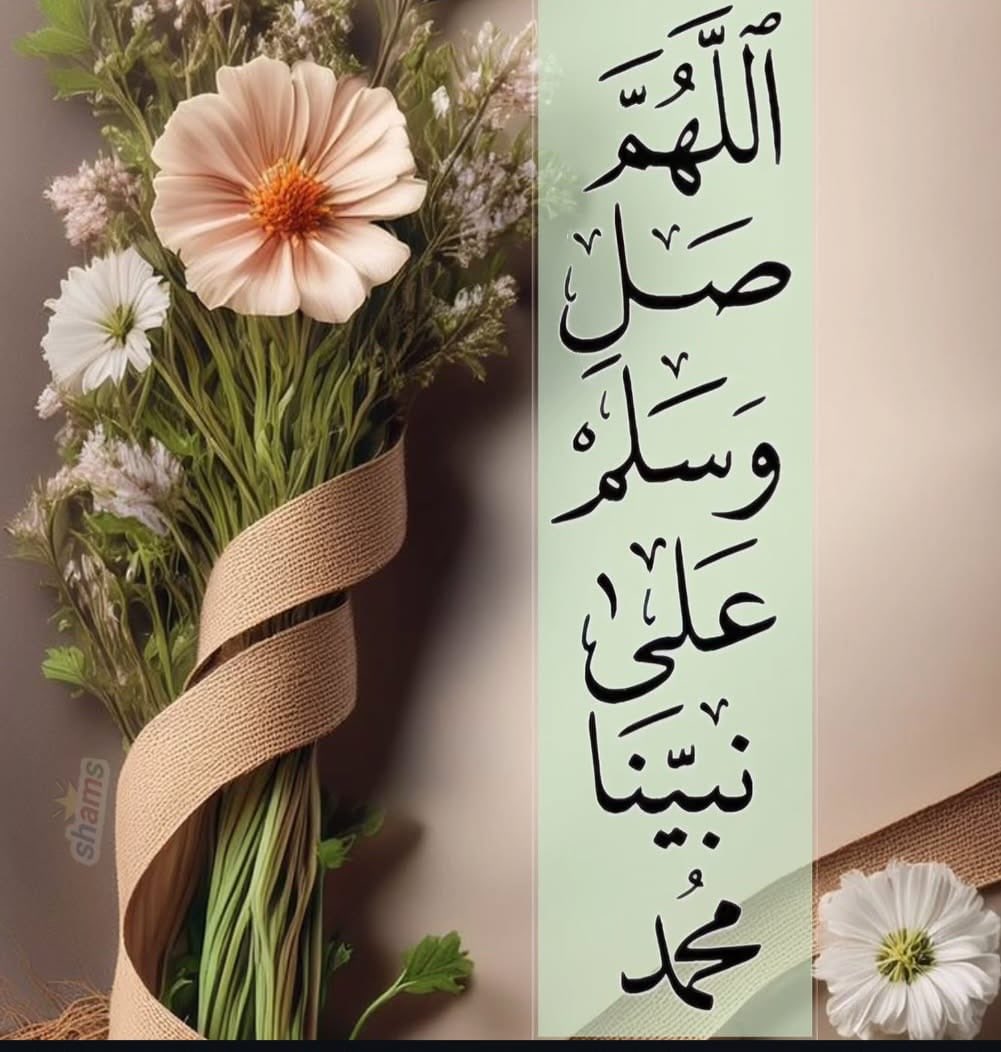 ٱللَّهُمَّ
صَلِ
وَسَلِمْ
عَلَىٰ
نَبِيّنَا
مُحَمد
shams